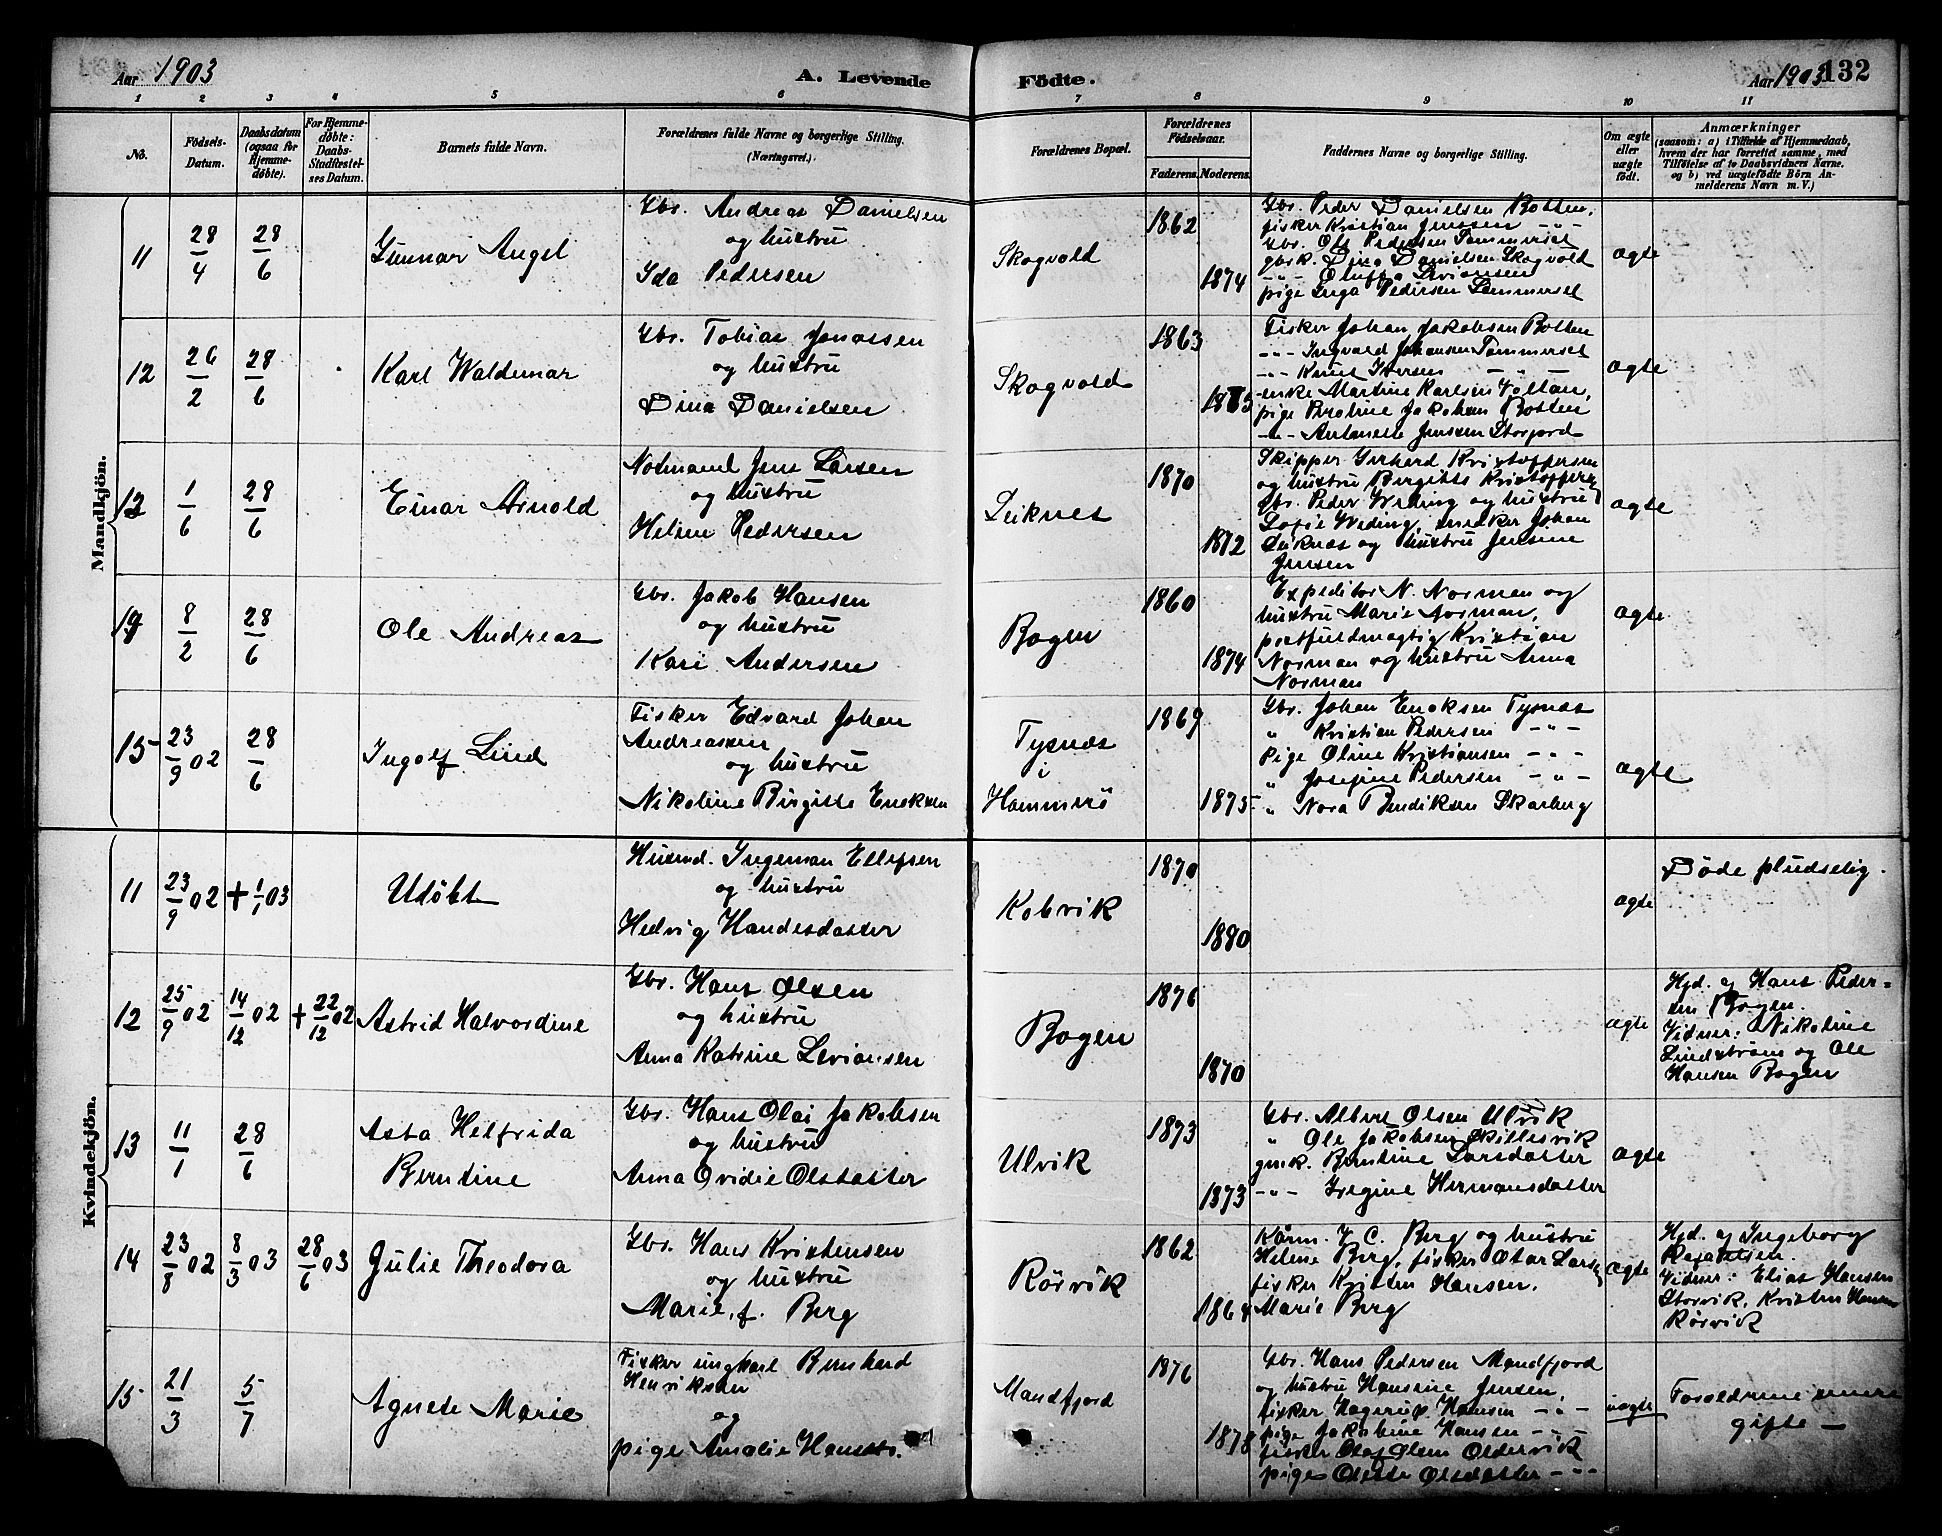 Aar 1903
A. Levende
Födte.
Aar 1903
132
1 2 3 4 5 6 7 8 9 10 11
No.
Födsels-
Datum.
Daabsdatum
(ogsaa for
Hjemme-
döbte).
For Hjemme-
döbte:
Daabs-
Stadfæstel-
ses Datum.
Barnets fulde Navn.
Forældrenes fulde Navne og borgerlige Stilling.
(Næringsvei.)
Forældrenes Bopæl.
Forældrenes
Födselsaar.
Faderens. Moderens.
Faddernes Navne og borgerlige Stilling.
Om ægte
eller
uægte
födt.
Anmærkninger
(saasom: a) i Tilfælde af Hjemmedaab,
hvem der har forrettet samme, med
Tilföielse af to Daabsvidners Navne,
og b) ved uægtefödte Börn An-
melderens Navn m. V.)
Mandkjön.
11
28/4
28/6
Gunnar Angel
Gbr. Andreas Danielsen
og hustru
Ida Pedersen
Skogvold
1862
1874
Gbr. Peder Danielsen Botten,
fisker Kristian Jenssen -"-
Gbr. Ole Pedersen Tømmerset
gbrk. Dina Danielsen Skogvold
-"- Oluffa Leviansen
pige Inga Pedersen Tømmerset
ægte
12
26/2
28/6
Karl Waldemar
Gbr. Tobias Jonassen
og hustru
Dina Danielsen
Skogvold
1863
1865
Fisker Johan Jakobsen Botten
-"- Ingvald Johansen Tømmerset
-"- Knut Iversen -"-
enke Martine Karlsen
pige Beroline Jakobsen Botten
-"- Antonette Jenssen Storjord
ægte
13
1/6
28/6
Einar Arnold
Notmand Jens Larsen
og hustru
Heline Pedersen
Leiknes
1870
1872
Skipper Gerhard Kristoffersen
og hustru Birgitte Kristoffersen
Gbr. Peder Weding og hustru
Sofie Weding, snedker Johan
Leiknes og hustru Jensine
Jensen
ægte
14
8/2
28/6
Ole Andreas
Gbr. Jakob Hansen
og hustru
Kari Andersen
Bogen
1860
1874
Expeditør N. Norman og
hustru Marie Norman,
postfuldmægtig Kristian
Norman og hustru Anna
Norman
ægte
15
23/9 02
28/6
Ingolf Lind
Fisker Edvard Johan
Andreassen
og hustru
Nikoline Birgitte Enoksen
Tysnes
i
Hammerö
1869
1875
Gbr. Johan Enoksen Tysnes
" Kristian Pedersen -"-
Pige Oline Kristiansen -"-
" Josefine Pedersen -"-
" Nora Bendiksen Skarberg
ægte
Kvindekjön.
11
23/9 02
+ 1/1 03
Udøbt
Husmd. Ingeman Ellefsen
og hustru
Hedvig Handesdatter
Kobvik
1870
1880
ægte
Døde pludselig.
12
25/9 02
14/12 02
+ 22/12 02
Astrid Halvordine
Gbr. Hans Olsen
og hustru
Anna Katrine Leviansen
Bogen
1876
1870
ægte
Hjd. af Hans Peder-
sen Bogen
Vidner: Nikoline
Lindstrøm og Ole
Hansen Bogen
13
11/1
28/6
Asta Helfrida
Berntine
Gbr. Hans Olai Jakobsen
og hustru
Anna Ovidie Olsdatter
Ulvik
1873
1873
Gbr. Albert Olsen Ulvik
" Ole Jakobsen Skillesvik
gmk. Berntine Larsdatter
-"- Iregine Hermansdatter
ægte
14
23/8 02
8/3 03
28/6 03
Julie Theodora
Gbr. Hans Kristensen
og hustru
Marie, f. Berg
Rörvik
1862
1864
Kårm. J. C. Berg og hustru
Helene Berg, fisker Otar Larsen
fisker Kristen Hansen.
Marie Berg
ægte
Hjd. af Ingeborg
Rafaelsen.
Vidner: Elias Hansen
Storvik, Kristen Hansen
Rörvik
15
21/3
5/7
Agnete Marie
Fisker ungkarl Bernhard
Henriksen
og
pige Amalie Hansdtr.
Mandfjord
1876
1878
Gbr. Hans Pedersen Mandfjord
og hustru Hansine Jensen,
fisker Hagerup Hansen -"-
pige Jakobine Hansen -"-
fisker Olaf Olsen Oldervik
pige Olette Olsdatter -"-
uægte
Forældrene senere
gifte —